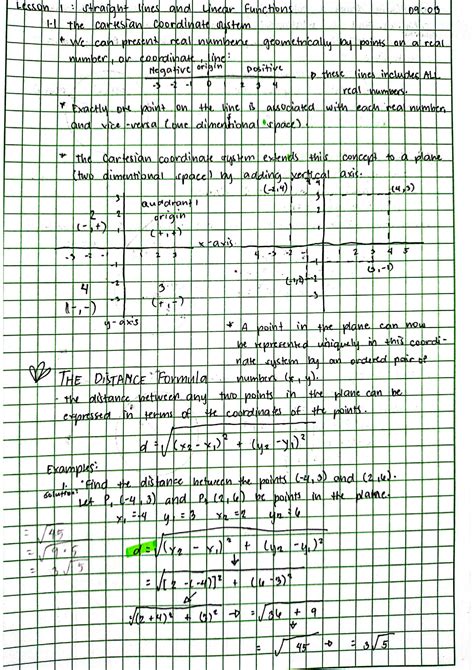 Lesson 1 : straight lines and Linear Functions 09-03
1.1 The cartesian coordinate system
* We can present real numbers geometrically by points on a real
number, or coordinate, line:
Negative origin Positive
-3 -2 -1 0 1 2 3 4
these lines includes ALL
real numbers.
* Exactly one point on the line is associated with each real number
and vice-versa (one dimentional space).
* The Cartesian coordinate system extends this concept to a plane
(two dimentional space) by adding vertical axis.
3 quadrant 1
2 2 origin
(-,+) 1 (+,+)
x-axis
-3 -2 -1 1 2 3
-1
4 -2 3
(-,-) -3 (+,-)
y-axis
(-2,4) 4 (4,3)
3
2
1
4 -3 -2 -1 1 2 3 4 5
-1 (3,-1)
-2
-3
* A point in the plane can now
be represented uniquely in this coordi-
nate system by an ordered pair of
numbers (x, y).
THE DISTANCE Formula
- the distance between any two points in the plane can be
expressed in terms of the coordinates of the points.
d = √(x2 - x1)² + (y2 - y1)²
Examples:
1. Find the distance between the points (-4,3) and (2,6).
Solution: Let P1 (-4,3) and P2 (2,6) be points in the plane.
x1 = -4 y1 = 3 x2 = 2 y2 = 6
d = √(x2 - x1)² + (y2 - y1)²
= √[2 - (-4)]² + (6-3)²
√(2+4)² + (3)² → = √36 + 9
= √45 → = 3√5
= √45
= √9·5
= 3√5